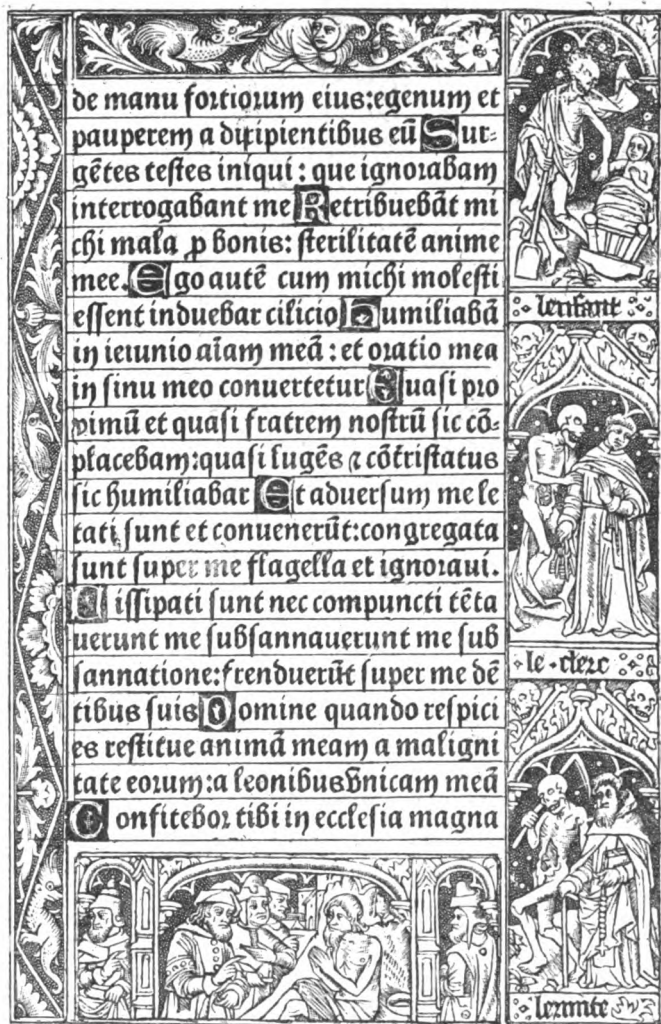 de manu fortiorum eius:egenum et
pauperem a diripientibus eū Sur-
gētes testes iniqui : que ignorabam
interrogabant me Retribuebāt mi
chi mala ꝓ bonis: sterilitatē anime
mee. Ego autē cum michi molesti
essent induebar cilicio Humiliabā
in ieiunio aīam meā : et oratio mea
in sinu meo conuertetur Quasi pro
ximū et quasi fratrem nostrū sic cō-
placebam:quasi lugēs ⁊ cōtristatus
sic humiliabar Et aduersum me le
tati sunt et conuenerūt:congregata
sunt super me flagella et ignoraui.
Dissipati sunt nec compuncti tēta
uerunt me subsannauerunt me sub
sannatione:frenduerūt super me dē
tibus suis Domine quando respici
es restitue animā meam a maligni
tate eorum:a leonibus vnicam meā
Confitebor tibi in ecclesia magna
lenfant
le clerc
lermite